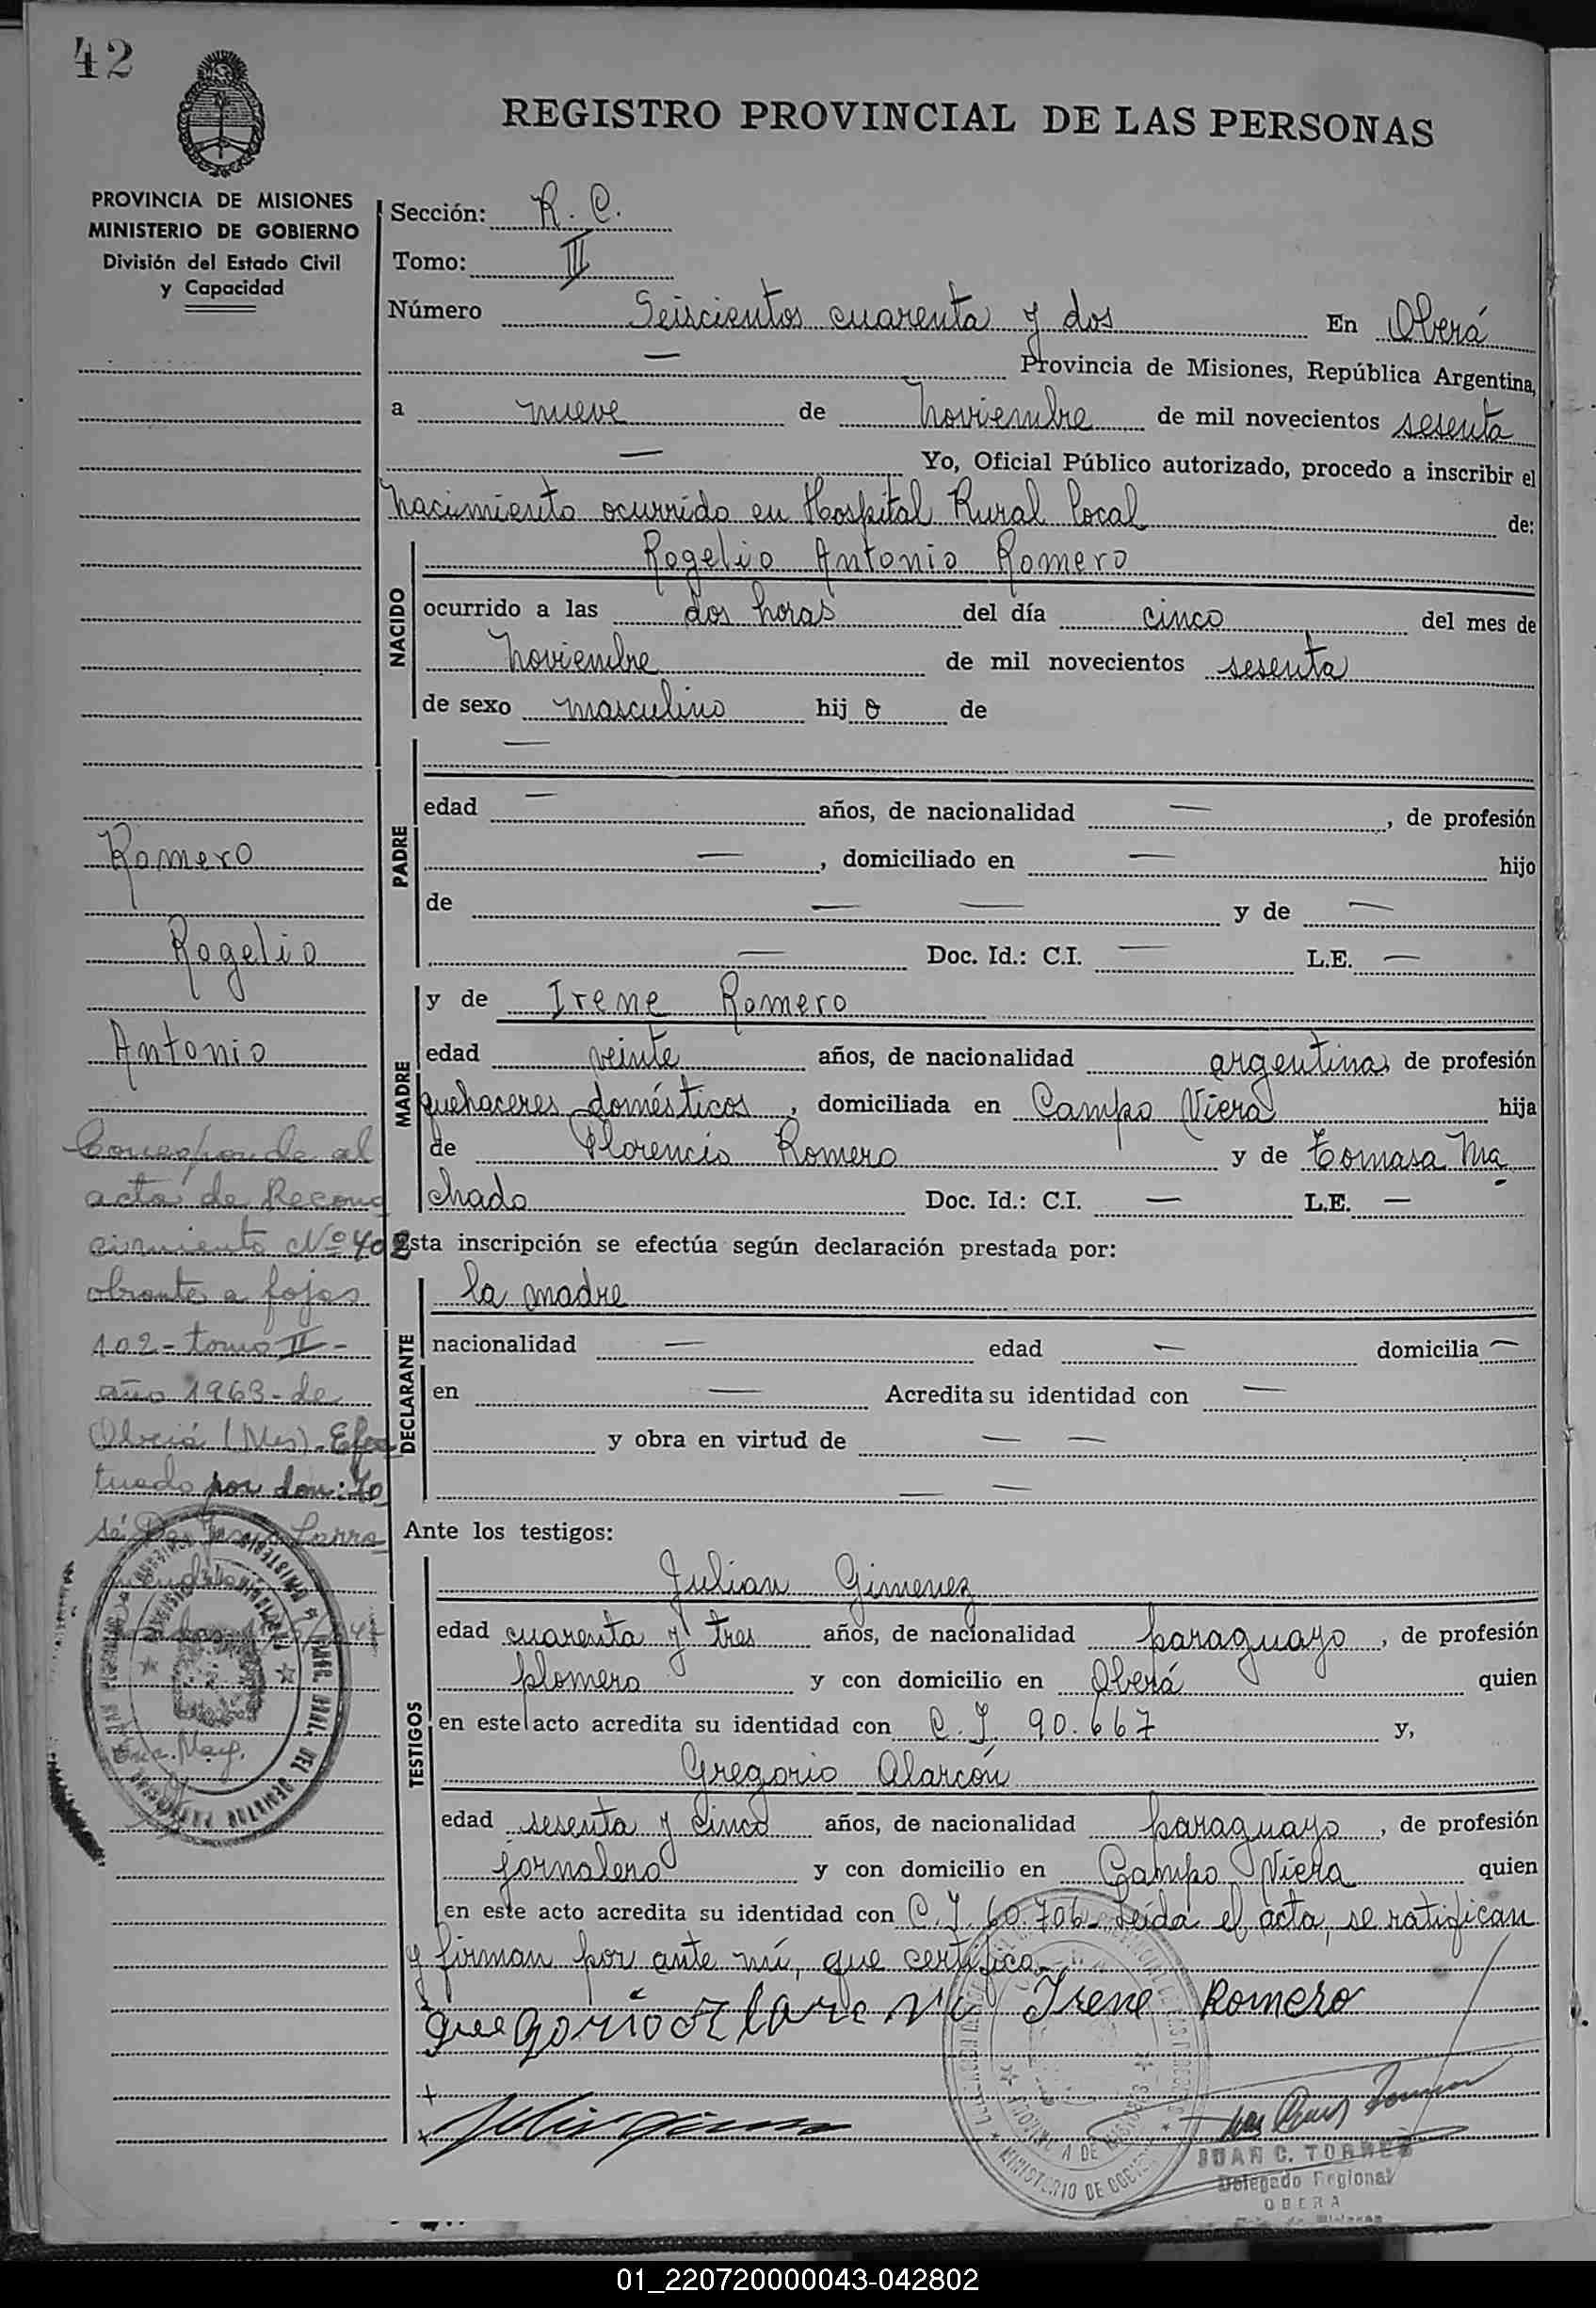 42
REGISTRO PROVINCIAL DE LAS PERSONAS
PROVINCIA DE MISIONES
MINISTERIO DE GOBIERNO
División del Estado Civil
y Capacidad
Sección: R. C.
Tomo: II
Número Seiscientos cuarenta y dos En Oberá
— Provincia de Misiones, República Argentina,
a nueve de noviembre de mil novecientos sesenta
— Yo, Oficial Público autorizado, procedo a inscribir el
nacimiento ocurrido en Hospital Rural Local de:
NACIDO
Rogelio Antonio Romero
ocurrido a las dos horas del día cinco del mes de
noviembre de mil novecientos sesenta
de sexo masculino hij o de
PADRE
—
edad — años, de nacionalidad —, de profesión
—, domiciliado en — hijo
de — — y de —
— Doc. Id.: C.I. — L.E. —
MADRE
y de Irene Romero
edad veinte años, de nacionalidad argentina, de profesión
quehaceres domésticos, domiciliada en Campo Viera hija
de Florencio Romero y de Tomasa Ma
chado Doc. Id.: C.I. — L.E. —
Esta inscripción se efectúa según declaración prestada por:
DECLARANTE
la madre
nacionalidad — edad — domicilia —
en — Acredita su identidad con —
y obra en virtud de — —
— —
Ante los testigos:
TESTIGOS
Julian Gimenez
edad cuarenta y tres años, de nacionalidad paraguayo, de profesión
plomero y con domicilio en Oberá quien
en este acto acredita su identidad con C. I. 90.667 y,
Gregorio Alarcón
edad sesenta y cinco años, de nacionalidad paraguayo, de profesión
jornalero y con domicilio en Campo Viera quien
en este acto acredita su identidad con C. I. 60.706- Leída el acta, se ratifican
y firman por ante mí, que certifico.-
Irene Romero
JUAN C. TORRES
Delegado Regional
OBERA
Romero
Rogelio
Antonio
Corresponde al
acta de Recono
cimiento Nº 402
obrante a fojas
102- tomo II-
año 1963- de
Oberá (Mes)- Efec
tuado por don: Jo
sé
Enc. Mag.
MINISTERIO DE GOBIERNO
01_220720000043-042802